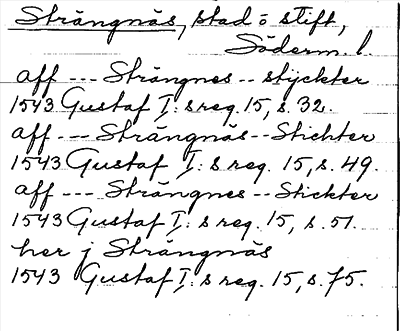 Strängnäs, stad o stift,
Söderm. l.
aff --- Strängnes -- styckter
1543 Gustaf I:s reg. 15, s. 32.
aff --- Strängnäs -- Stichter
1543 Gustaf I:s reg. 15, s. 49.
aff --- Strängnes -- Stickter
1543 Gustaf I:s reg. 15, s. 51.
her j Strängnäs
1543 Gustaf I:s reg. 15, s. 75.